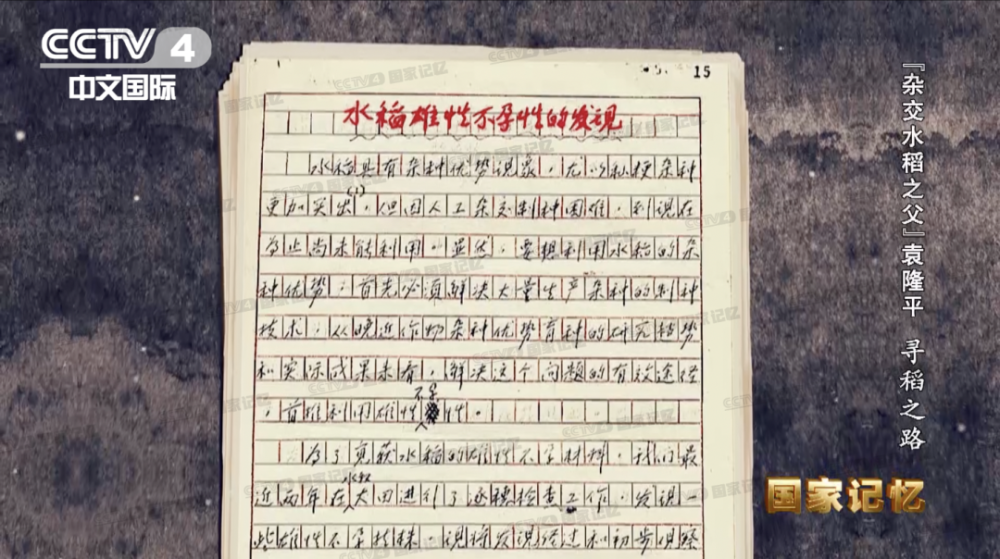 CCTV 4
中文国际
15
水稻雄性不孕性的发现
水稻具有杂种优势现象，尤以籼粳杂种
更加突出(1)，但因人工杂交制种困难，到现在
为止尚未能利用。显然，要想利用水稻的杂
种优势，首先必须解决大量生产杂种的制种
技术，从晚近作物杂种优势育种的研究趋势
和实际成果来看，解决这个问题的有效途径
，首推利用雄性不孕性。
为了觅获水稻的雄性不孕材料，我们最
近两年在水稻大田进行了逐穗检查工作，发现一
些雄性不孕植株，现将发现经过和初步观察
『杂交水稻之父』袁隆平 寻稻之路
国家记忆